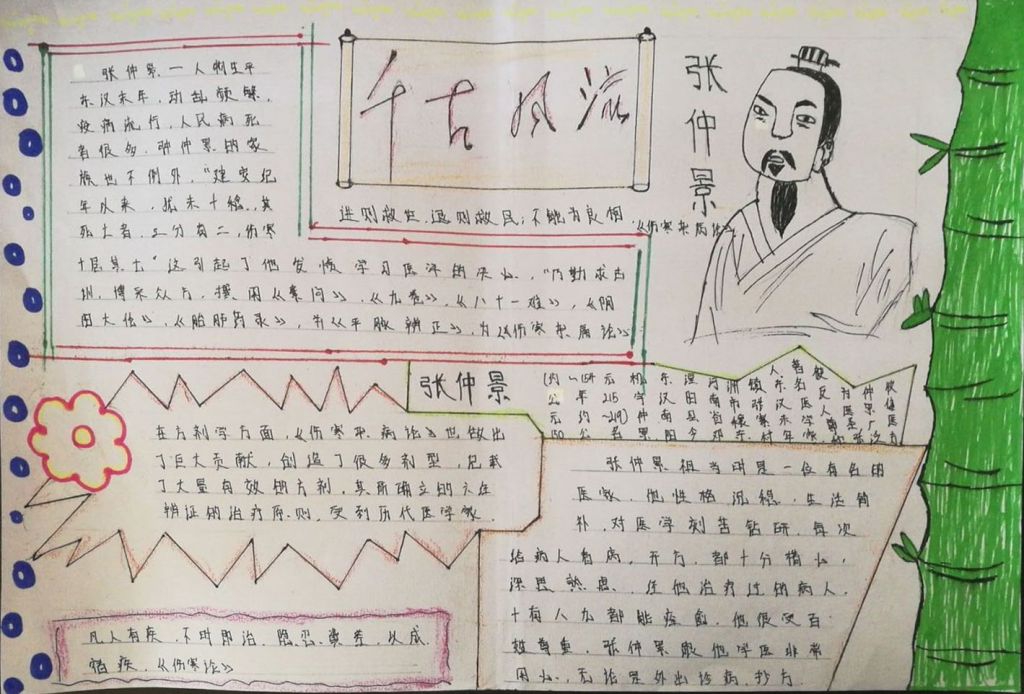 张仲景一人的生平
东汉末年，动乱频繁，
疫病流行，人民病死
者很多，张仲景的家
族也不例外，“建安纪
年以来，犹未十稔，其
死亡者，三分有二，伤寒
十居其七”这引起了他发愤学习医术的决心，“乃勤求古
训，博采众方，撰用《素问》，《九卷》，《八十一难》，《阴
阳大伦》，《胎胪药录》，
千古风流
进则救世，退则救民；不能为良相
《伤寒杂病论》
张仲景
张仲景
在方剂学方面，《伤寒杂病论》也做出
了巨大贡献，创造了很多剂型，记载
了大量有效的方剂，其所确立的六经
辨证的治疗原则，受到历代医学家
张仲景祖当时是一位有名的
医家，他性格沉稳，生活简
朴，对医学刻苦钻研，每次
给病人看病，开方，都十分精心，
深思熟虑，任他治疗过的病人，
十有八九都能痊愈，他很受百
姓尊重，张仲景跟他学医非常
用心，无论是外出诊病，抄方
凡人有疾，不时即治，隐忍冀差，以成
痼疾，《伤寒论》